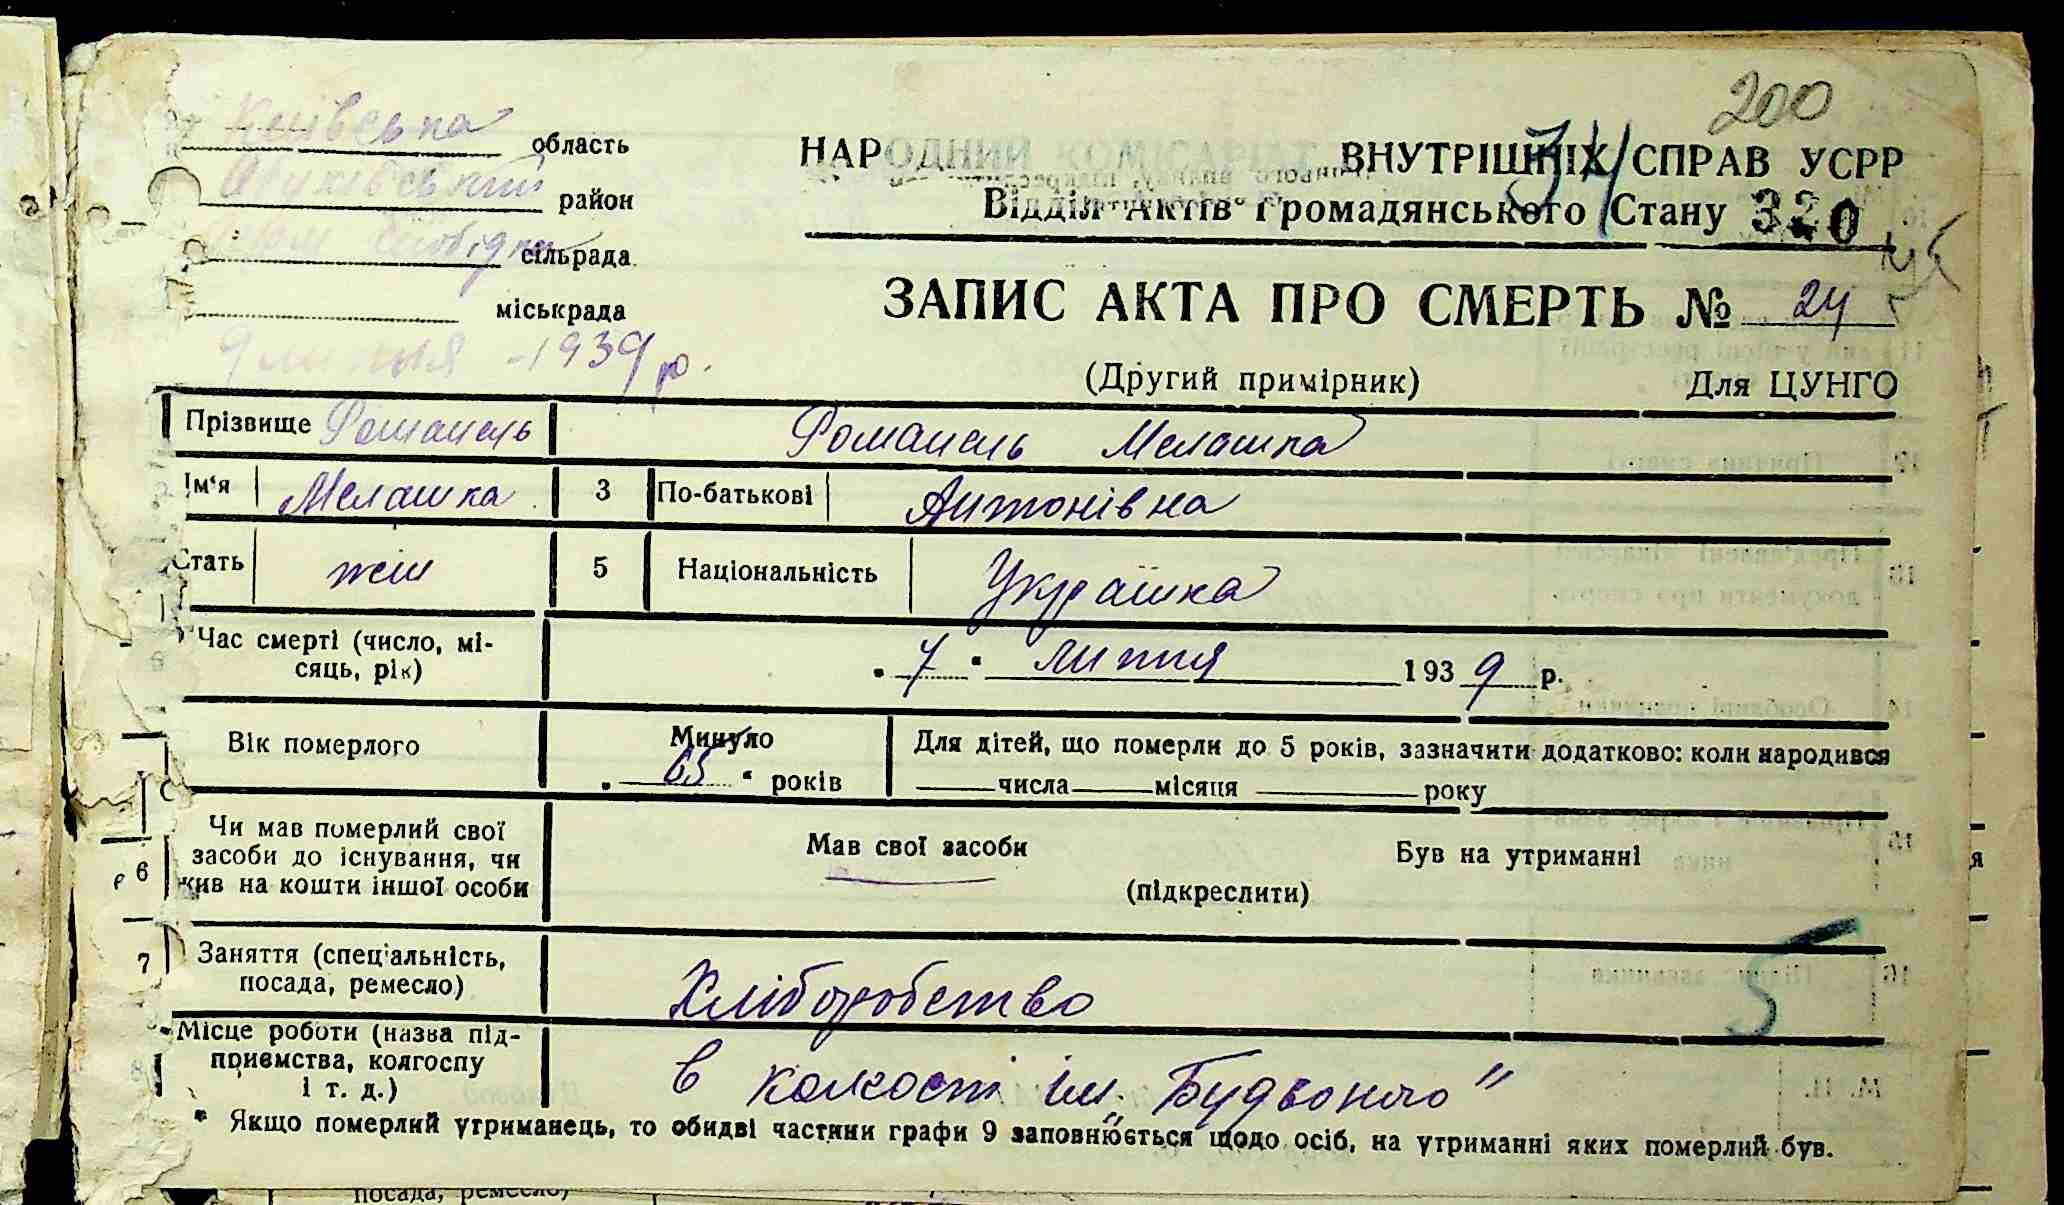 200
Київська область
НАРОДНИЙ КОМІСАРІАТ ВНУТРІШНІХ СПРАВ УСРР
34
район
Відділ Актів Громадянського Стану 320
Слобідка сільрада
міськрада
ЗАПИС АКТА ПРО СМЕРТЬ № 24
9 липня - 1939 р.
(Другий примірник) Для ЦУНГО
Прізвище Романель Романель Мелашка
Ім'я Мелашка 3 По-батькові Антонівна
Стать жін 5 Національність Українка
Час смерті (число, мі-
сяць, рік) " 7 " липня 1939 р.
Вік померлого Минуло Для дітей, що померли до 5 років, зазначити додатково: коли народився
" 65 " років числа місяця року
Чи мав померлий свої
засоби до існування, чи
жив на кошти іншої особи
Мав свої засоби Був на утриманні
(підкреслити)
6
7 Заняття (спеціальність,
посада, ремесло) Хліборобство
5
Місце роботи (назва під-
приємства, колгоспу
і т. д.) в колгоспі ім.
* Якщо померлий утриманець, то обидві частини графи 9 заповнюється щодо осіб, на утриманні яких померлий був.
посада, ремесло)